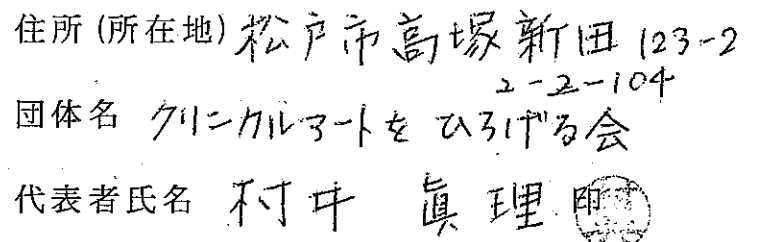 住所(所在地)松戸市高塚新田123-2
2-2-104
団体名 クリニカルアートをひろげる会
代表者氏名 村井 眞理 印